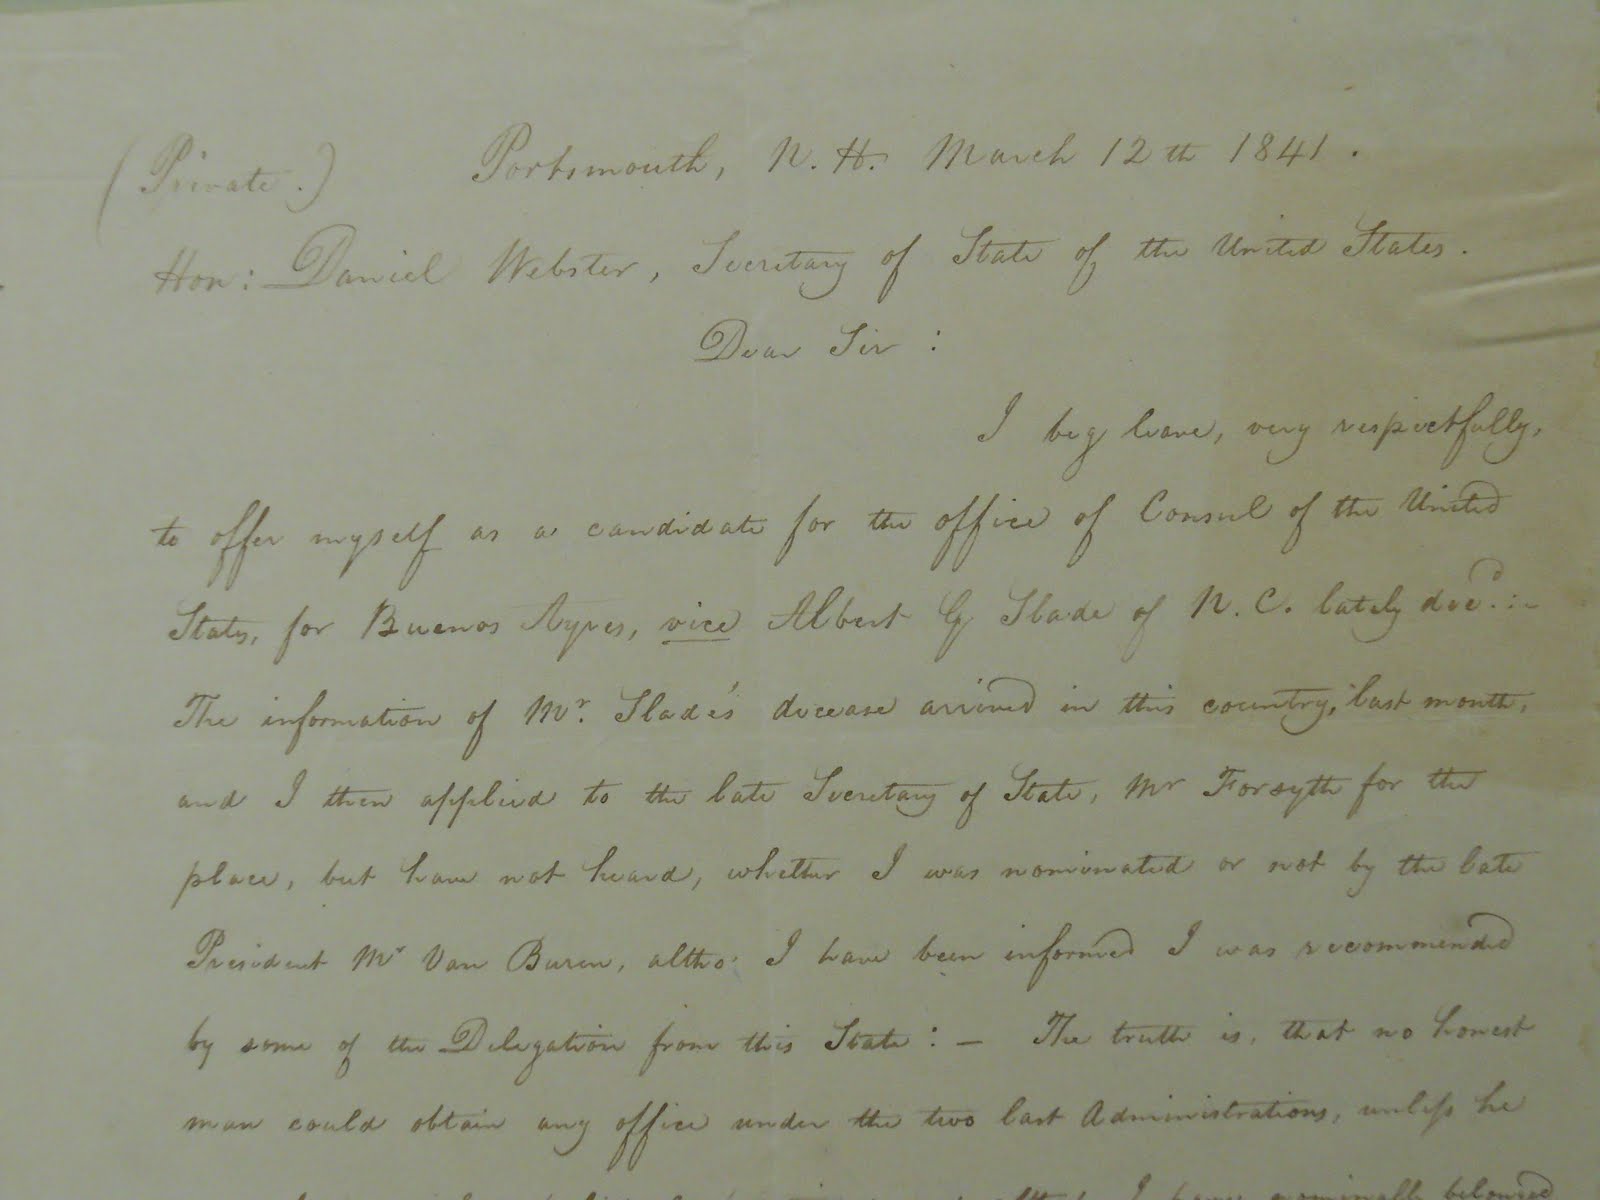 (Private.) Portsmouth, N. H. March 12th 1841.
Hon: Daniel Webster, Secretary of State of the United States.
Dear Sir:
I beg leave, very respectfully,
to offer myself as a candidate for the office of Consul of the United
States, for Buenos Ayres, vice Albert G Slade of N. C. lately decd:-
The information of Mr. Slade's decease arrived in this country, last month,
and I then applied to the late Secretary of State, Mr Forsyth for the
place, but have not heard, whether I was nominated or not by the late
President Mr Van Buren, altho' I have been informed I was recommended
by some of the Delegation from this State: — The truth is, that no honest
man could obtain any office under the two last Administrations, unless he
I have nominally belonged